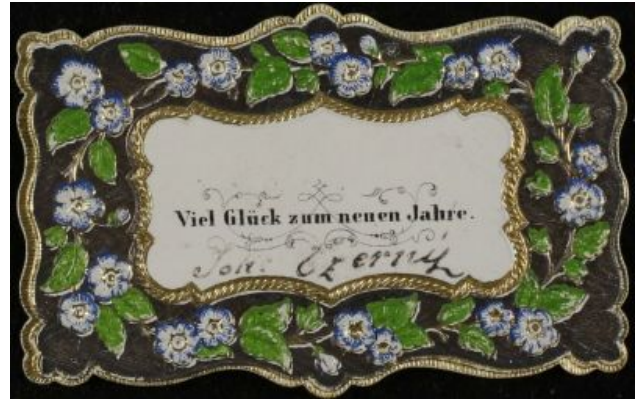 Viel Glück zum neuen Jahre.
Joh: Czerny